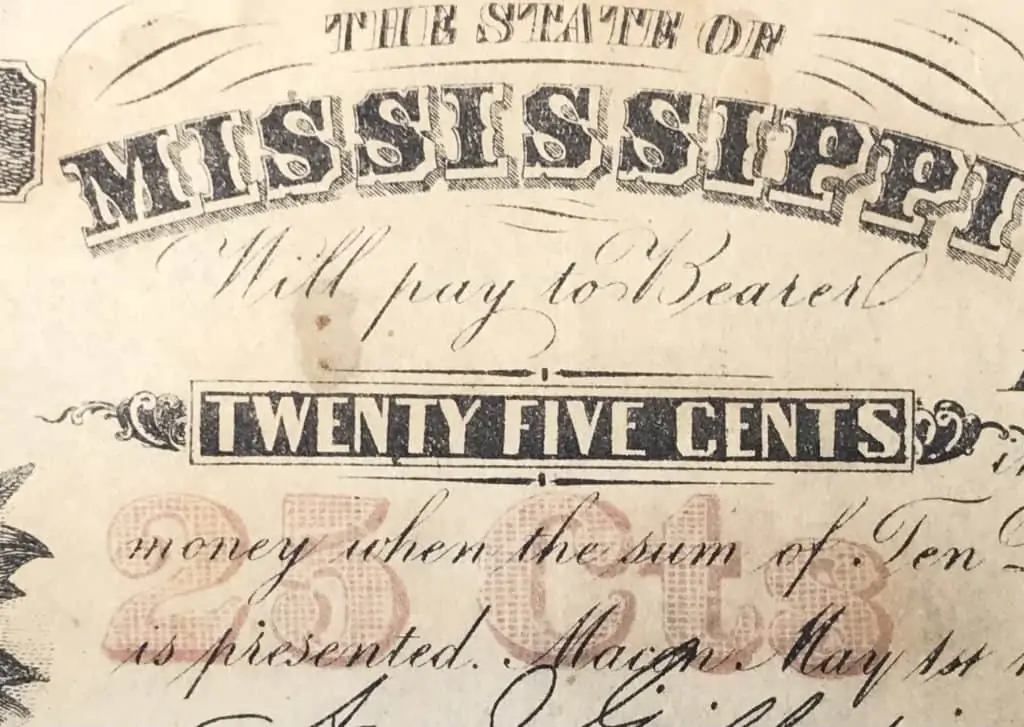 THE STATE OF
MISSISSIPPI
Will pay to Bearer
TWENTY FIVE CENTS
25 Cts
money when the sum of Ten
is presented. Macon. May 1st